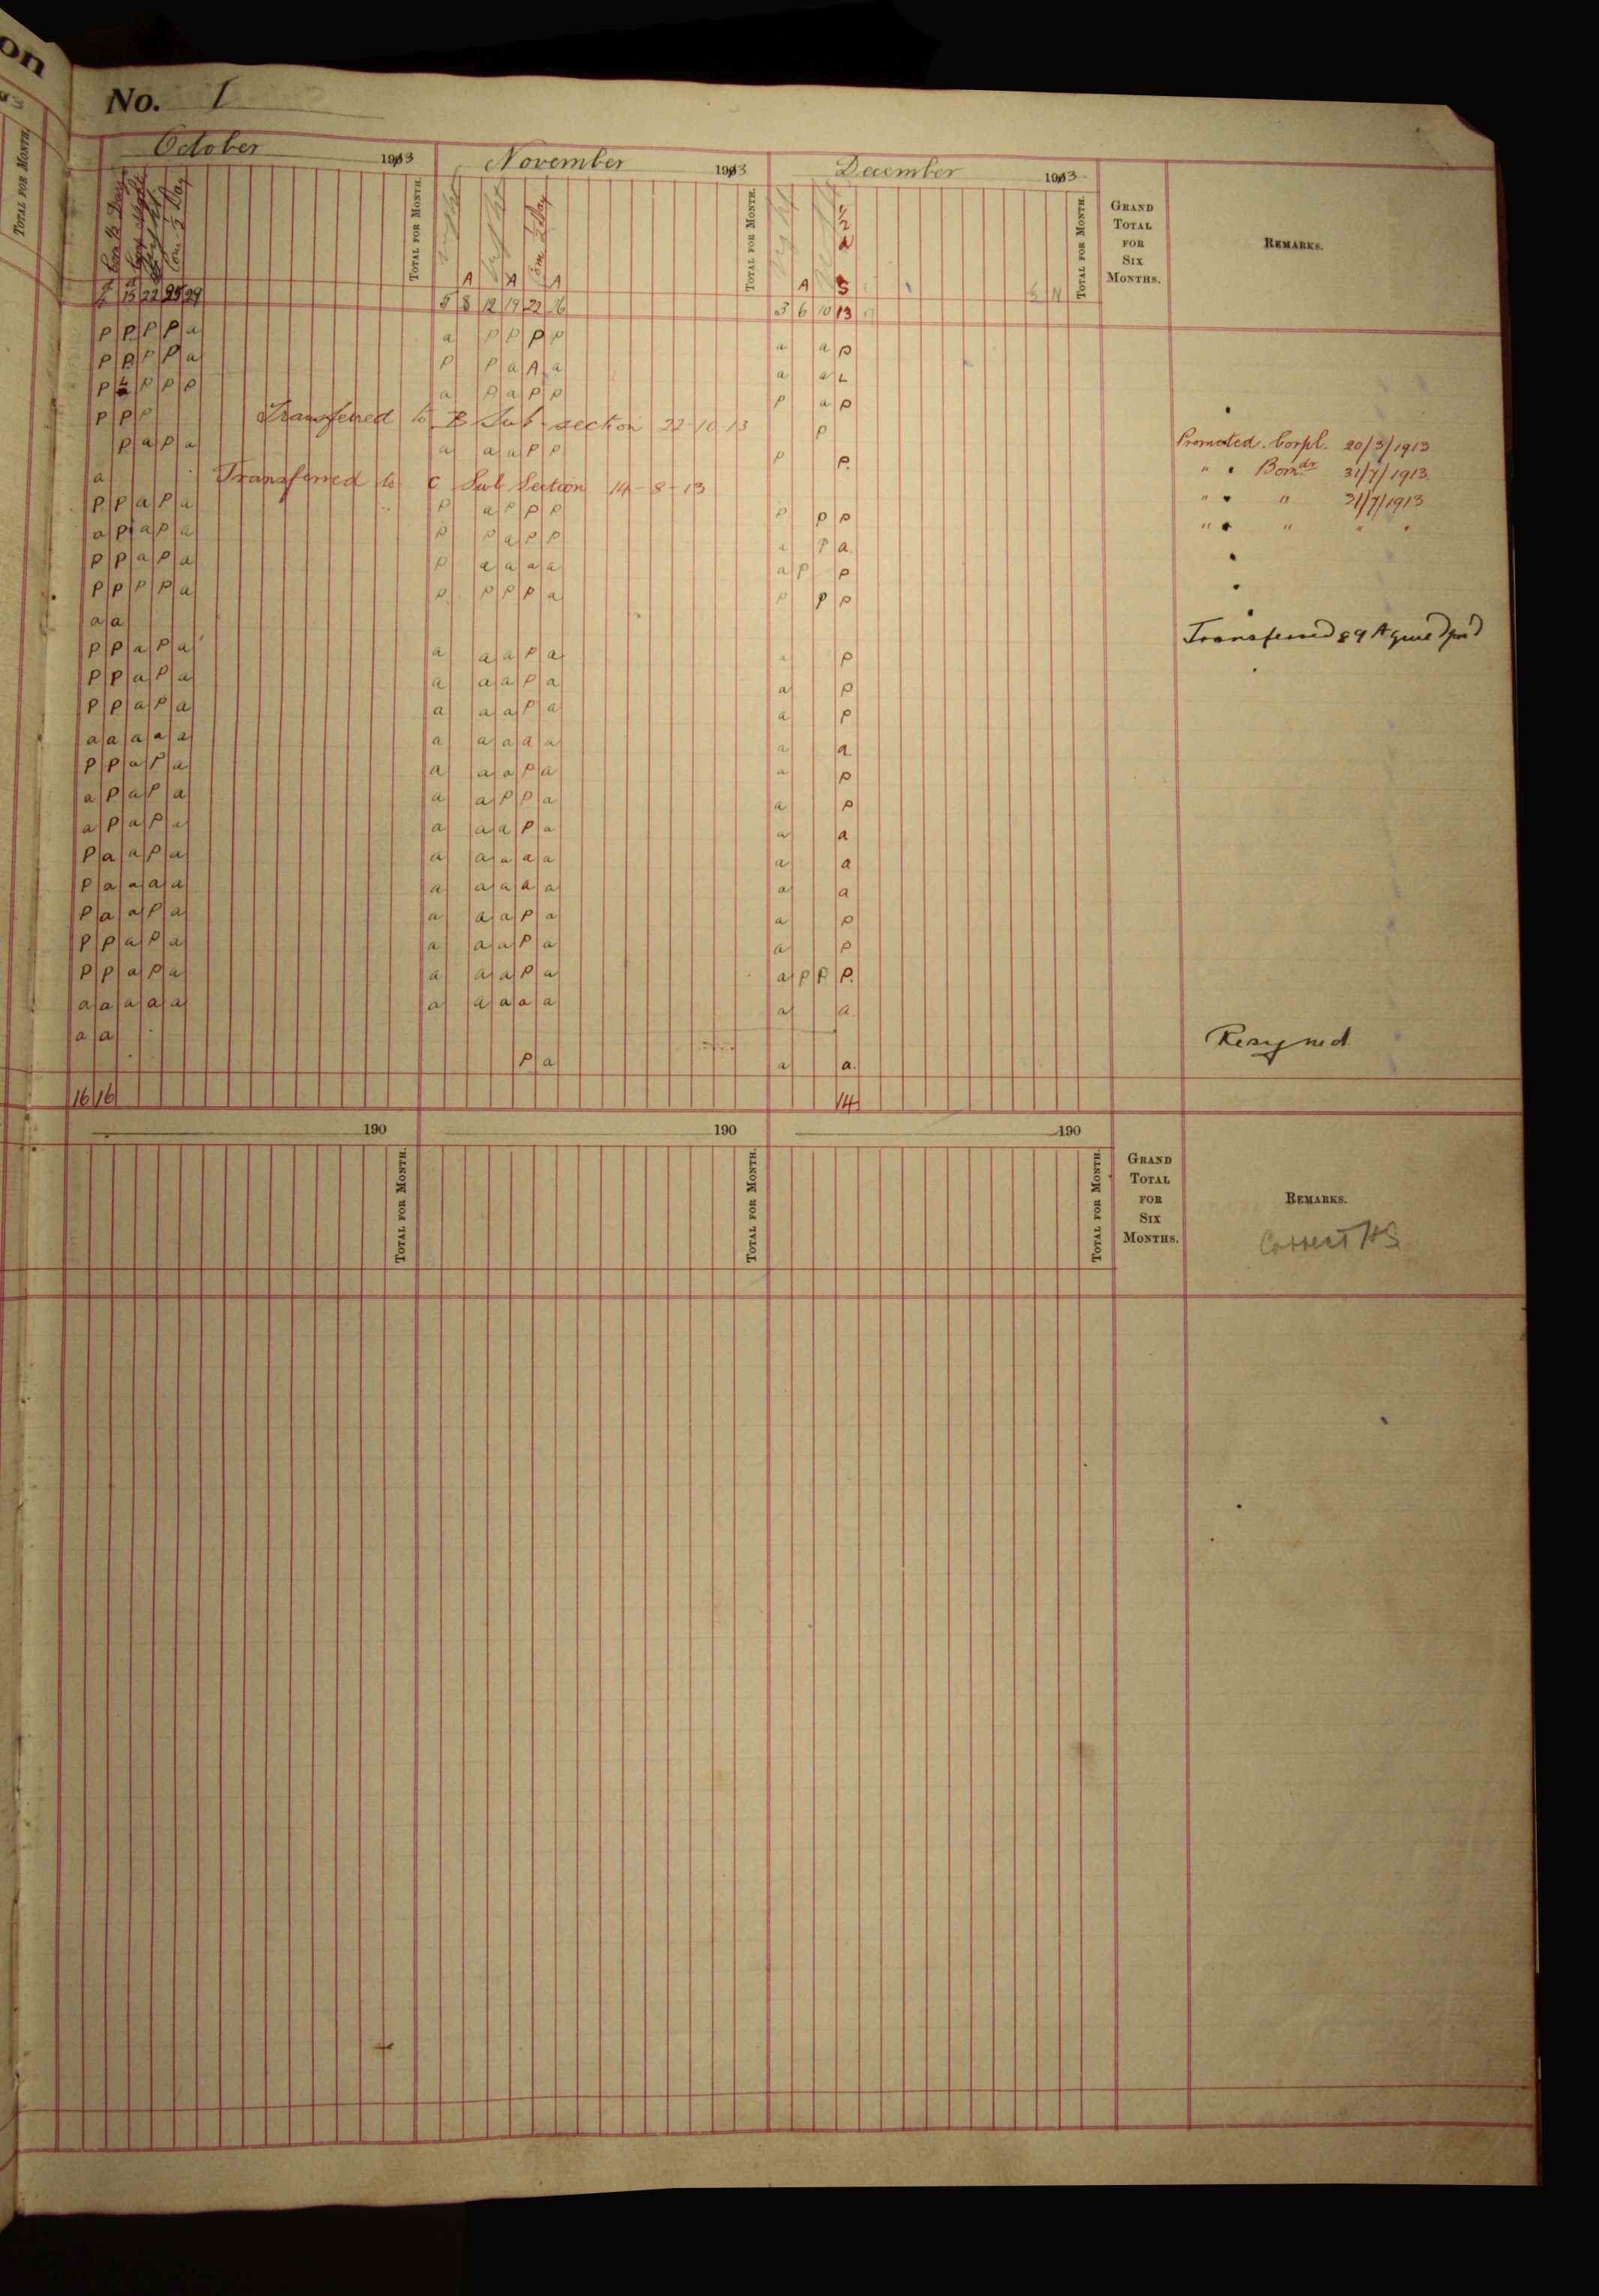 on
TOTAL FOR MONTH.
No. 1
October 1913 November 1913 December 1913
Comp ½ Day Night Com ½ Day TOTAL FOR MONTH. Night Night Com ½ Day TOTAL FOR MONTH. Night ½ a TOTAL FOR MONTH. GRAND TOTAL FOR SIX MONTHS. REMARKS.
A A A A S
15 22 25 29 5 8 12 19 22 26 3 6 10 13
P P P P a a P P P P a a P
P P P P a P P a A a a a L
P P P P a P a P P P a P
P P P Transferred to B Sub-section 22-10-13 P
P a P a a a a P P P P. Promoted Corpl. 20/3/1913
a Transferred to C Sub Section 14-8-13 " Bomdr 31/7/1913.
P P a P a P a P P P P P P " " 31/7/1913
a P a P a P P a P P a P a. " " " "
P P a P a P a a a a a P P
P P P P a P P P P a P P P
a a Transferred 89
P P a P a a a a P a a P
P P a P a a a a P a a P
P P a P a a a a P a a P
a a a a a a a a a a a a
P P a P a a a a P a a P
a P a P a a a P P a a P
a P a P a a a a P a a a
P a a P a a a a a a a a
P a a a a a a a a a a a
P a a P a a a a P a a P
P P a P a a a a P a a P
P P a P a a a a P a a P P P.
a a a a a a a a a a a a
a a Resigned
P a a a.
16 16 14
190 190 190
TOTAL FOR MONTH. TOTAL FOR MONTH. TOTAL FOR MONTH. GRAND TOTAL FOR SIX MONTHS. REMARKS.
Correct HS